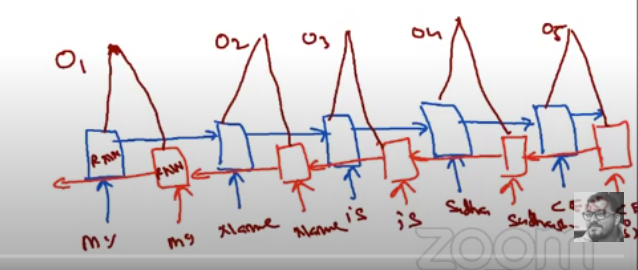 O1 O2 O3 O4 O5
RNN RNN
My my Name Name is is Sudha Sudhan CE
zoom